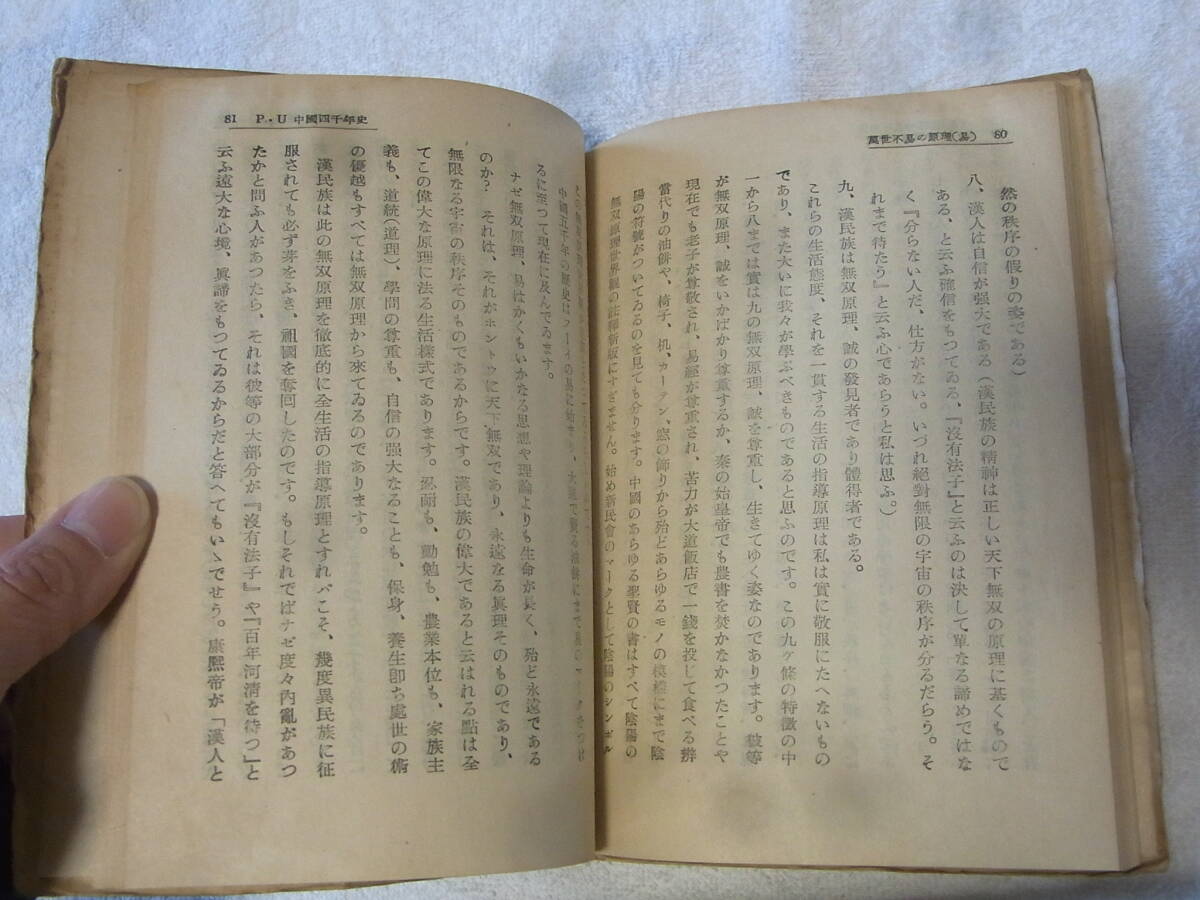 萬世不易の原理(易) 80
然の秩序の假りの姿である)
八、漢人は自信が强大である(漢民族の精神は正しい天下無双の原理に基くもので
ある、と云ふ確信をもつてゐる、『沒有法子』と云ふのは決して單なる諦めではな
く『分らない人だ、仕方がない。いづれ絕對無限の宇宙の秩序が分るだらう。そ
れまで待たう』と云ふ心であらうと私は思ふ。)
九、漢民族は無双原理、誠の發見者であり體得者である。
これらの生活態度、それを一貫する生活の指導原理は私は實に敬服にたへないもの
であり、また大いに我々が學ぶべきものであると思ふのです。この九ケ條の特徵の中
一から八までは實は九の無双原理、誠を尊重し、生きてゆく姿なのであります。彼等
が無双原理、誠をいかばかり尊重するか、秦の始皇帝でも農書を焚かなかつたことや
現在でも老子が尊敬され、易經が尊重され、苦力が大道飯店で一錢を投じて食べる辨
當代りの油餅や、椅子、机、カーテン、窓の飾りから殆どあらゆるモノの模樣にまで陰
陽の符號がついてゐるのを見ても分ります。中國のあらゆる聖賢の書はすべて陰陽の
無双原理世界觀の註釋新版にすぎません。始め新民會のマークとして陰陽のシンボル
81 P・U中國四千年史
中國五千年の歷史はフーイの易に始まり、大道で賣る油餅にまで易のマークをつけ
るに至つて現在に及んでゐます。
ナゼ無双原理、易はかくもいかなる思想や理論よりも生命が長く、殆ど永遠である
のか? それは、それがホントウに天下無双であり、永遠なる眞理そのものであり、
無限なる宇宙の秩序そのものであるからです。漢民族の偉大であると云はれる點は全
てこの偉大な原理に法る生活樣式であります。忍耐も、勤勉も、農業本位も、家族主
義も、道統(道理)、學問の尊重も、自信の强大なることも、保身、養生卽ち處世の術
の優越もすべては無双原理から來てゐるのであります。
漢民族は此の無双原理を徹底的に全生活の指導原理とすれバこそ、幾度異民族に征
服されても必ず芽をふき、祖國を奪回したのです。もしそれでばナゼ度々內亂があつ
たかと問ふ人があつたら、それは彼等の大部分が『沒有法子』や『百年河清を待つ』と
云ふ遠大な心境、眞諦をもつてゐるからだと答へてもいゝでせう。康熙帝が「漢人と